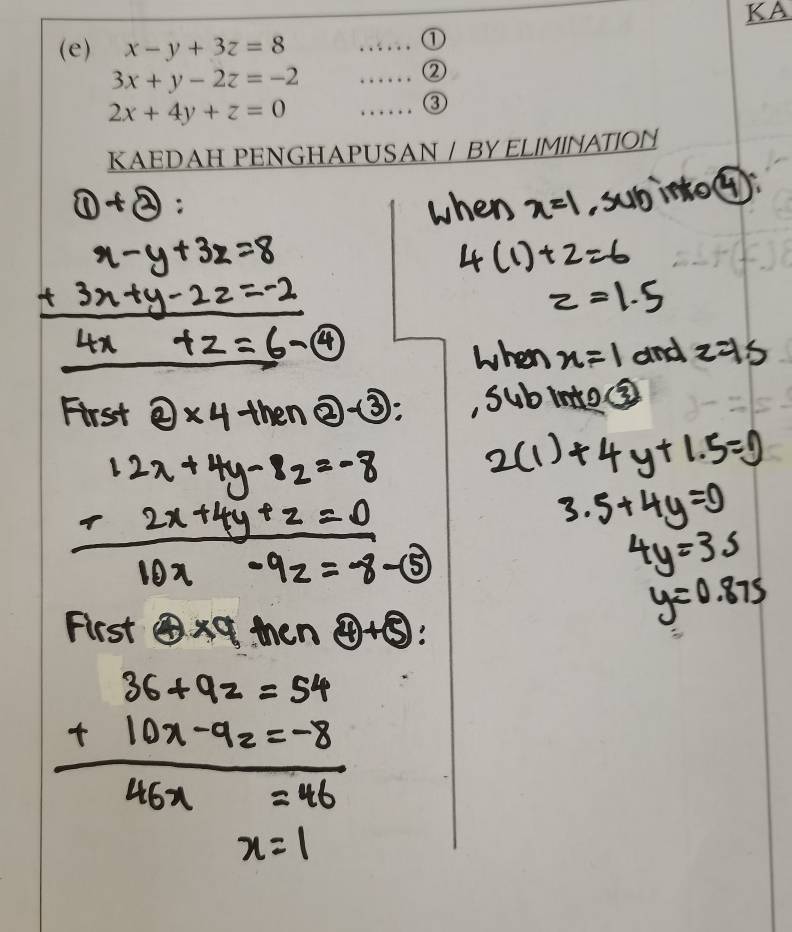 KA
(e) x − y + 3z = 8 ...... ①
3x + y − 2z = −2 ...... ②
2x + 4y + z = 0 ...... ③
KAEDAH PENGHAPUSAN / BY ELIMINATION
① + ② :
x − y + 3z = 8
+ 3x + y − 2z = −2
4x + z = 6 − ④
First ② × 4 then ② − ③ :
12x + 4y − 8z = −8
− 2x + 4y + z = 0
10x − 9z = −8 − ⑤
First ④ × 9, then ④ + ⑤ :
36 + 9z = 54
+ 10x − 9z = −8
46x = 46
x = 1
when x = 1, sub into ④ :
4(1) + z = 6
z = 1.5
when x = 1 and z = 1.5
, sub into ③
2(1) + 4y + 1.5 = 0
3.5 + 4y = 0
4y = 3.5
y = 0.875